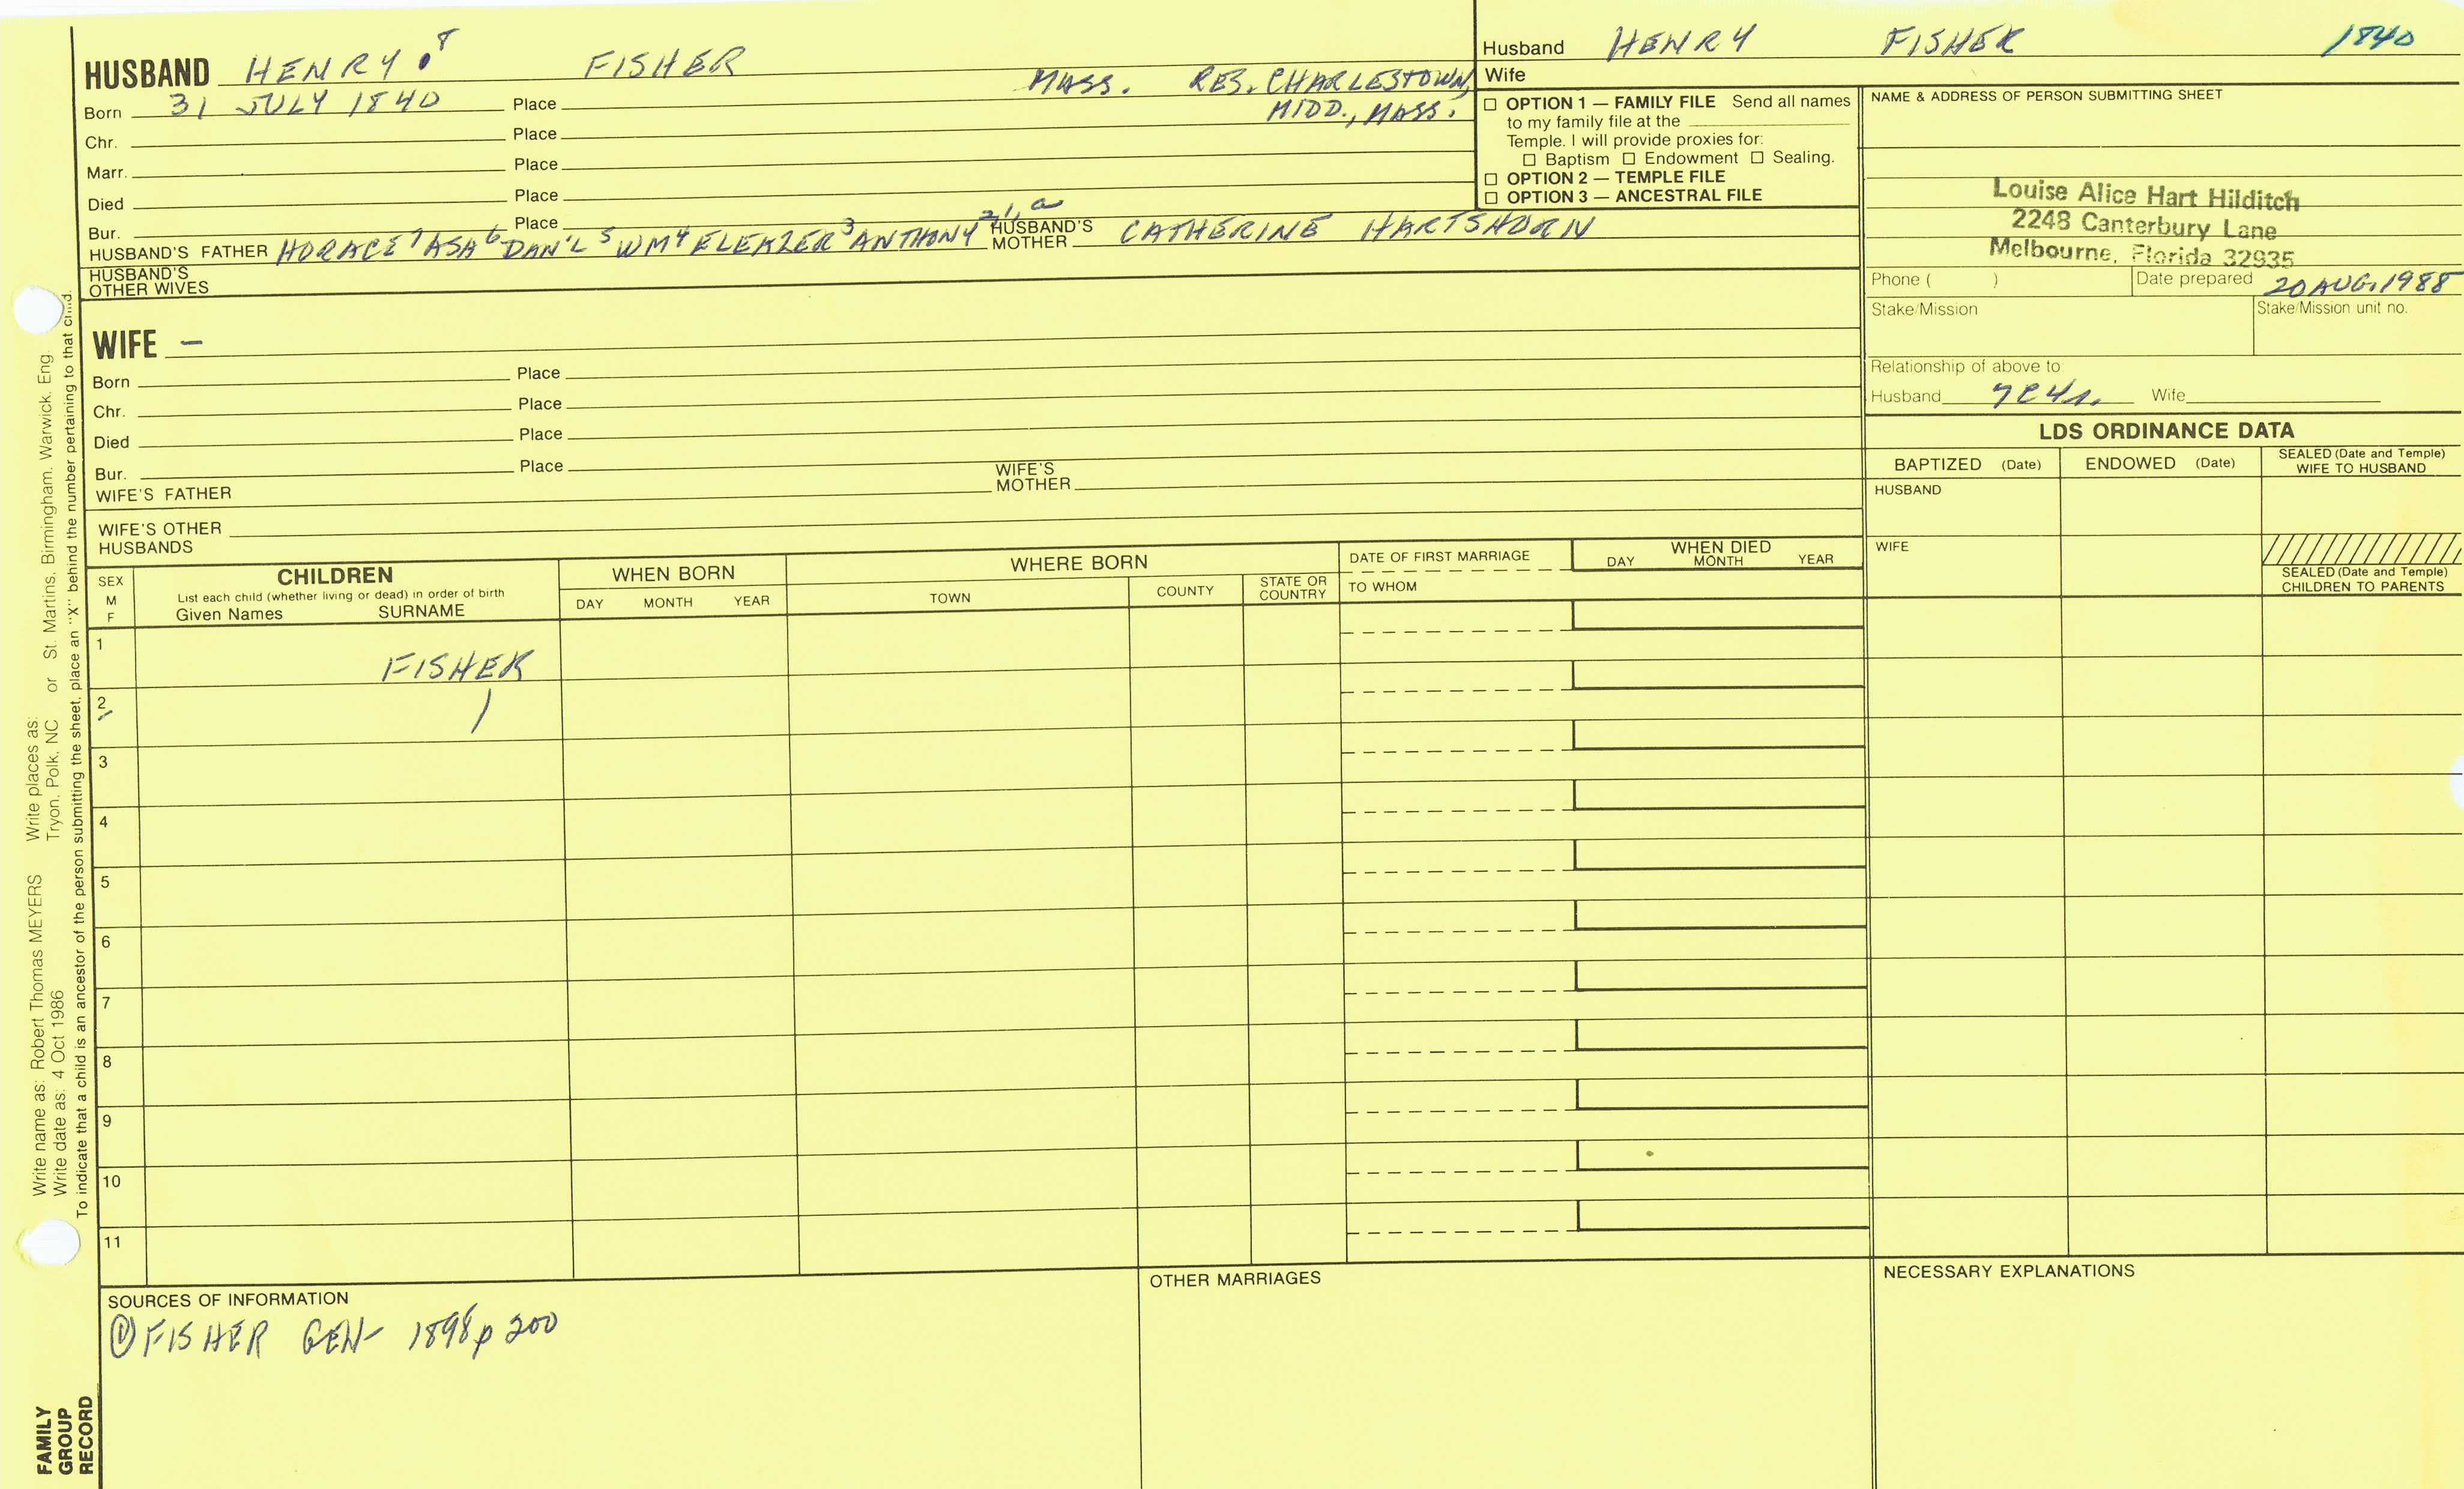 HUSBAND HENRY 8 FISHER
Born 31 JULY 1840 Place MASS. RES. CHARLESTOWN, MIDD., MASS.
Chr. Place
Marr. Place
Died Place
Bur. Place
HUSBAND'S FATHER HORACE 7 ASA 6 DAN'L 5 WM 4 ELEAZER 3 ANTHONY 2,1,a HUSBAND'S MOTHER CATHERINE HARTSHORN
HUSBAND'S OTHER WIVES
WIFE –
Born Place
Chr. Place
Died Place
Bur. Place
WIFE'S FATHER WIFE'S MOTHER
WIFE'S OTHER HUSBANDS
Husband HENRY FISHER 1840
Wife
☐ OPTION 1 — FAMILY FILE Send all names
to my family file at the
Temple. I will provide proxies for:
☐ Baptism ☐ Endowment ☐ Sealing.
☐ OPTION 2 — TEMPLE FILE
☐ OPTION 3 — ANCESTRAL FILE
NAME & ADDRESS OF PERSON SUBMITTING SHEET
Louise Alice Hart Hilditch
2248 Canterbury Lane
Melbourne, Florida 32935
Phone ( ) Date prepared 20 AUG. 1988
Stake/Mission Stake/Mission unit no.
Relationship of above to
Husband Wife
LDS ORDINANCE DATA
BAPTIZED (Date) ENDOWED (Date) SEALED (Date and Temple) WIFE TO HUSBAND
HUSBAND
WIFE
SEALED (Date and Temple)
CHILDREN TO PARENTS
SEX M F
CHILDREN
List each child (whether living or dead) in order of birth
Given Names SURNAME
WHEN BORN
DAY MONTH YEAR
WHERE BORN
TOWN COUNTY STATE OR COUNTRY
DATE OF FIRST MARRIAGE
TO WHOM
WHEN DIED
DAY MONTH YEAR
1 FISHER
2
3
4
5
6
7
8
9
10
11
SOURCES OF INFORMATION
① FISHER GEN- 1898 p 200
OTHER MARRIAGES
NECESSARY EXPLANATIONS
Write name as: Robert Thomas MEYERS Write places as:
Write date as: 4 Oct 1986 Tryon, Polk, NC or St. Martins, Birmingham, Warwick, Eng.
To indicate that a child is an ancestor of the person submitting the sheet, place an "X" behind the number pertaining to that child.
FAMILY
GROUP
RECORD